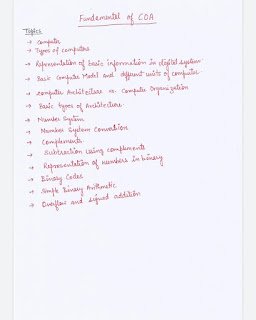 Fundamental of COA
Topics
→ Computer
→ Types of computers
→ Representation of basic information in digital system
→ Basic Computer Model and different units of computer
→ Computer Architecture vs. Computer Organization
→ Basic types of Architecture
→ Number System
→ Number System Convertion
→ Complements
→ Subtraction using complements
→ Representation of numbers in binary
→ Binary Codes
→ Simple Binary Arithmetic
→ Overflow and signed addition